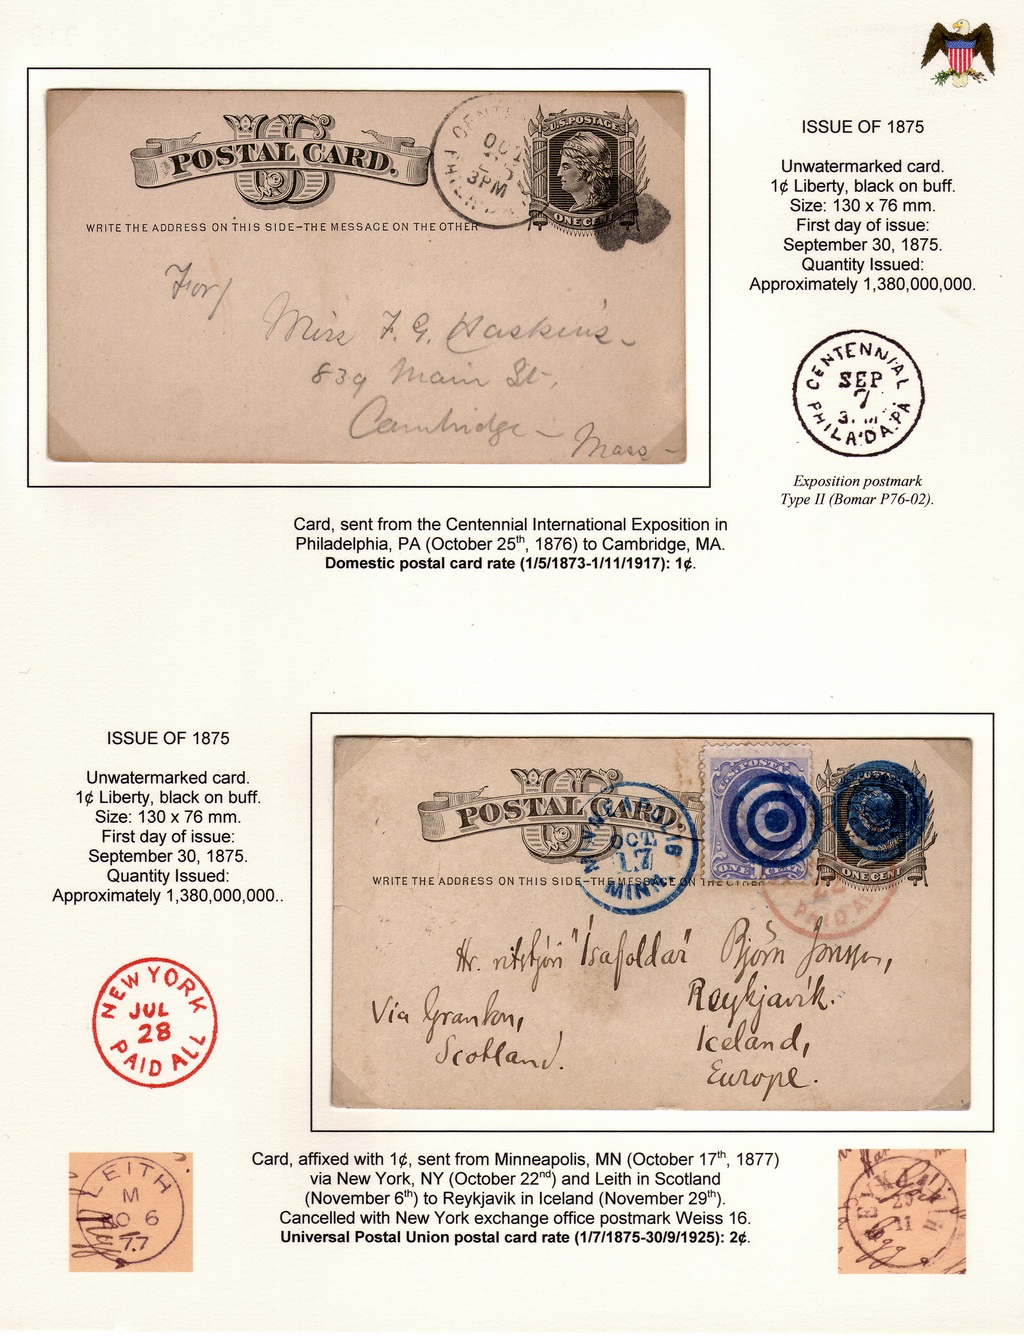 ISSUE OF 1875
Unwatermarked card.
1¢ Liberty, black on buff.
Size: 130 x 76 mm.
First day of issue:
September 30, 1875.
Quantity Issued:
Approximately 1,380,000,000.
U.S. POSTAL CARD.
WRITE THE ADDRESS ON THIS SIDE–THE MESSAGE ON THE OTHER
3PM
U.S. POSTAGE
ONE CENT
For/
Miss F. G. Haskins
839 Main St.,
Cambridge –
Mass –
CENTENNIAL
SEP
7
PHILA'DA. PA
Exposition postmark
Type II (Bomar P76-02).
Card, sent from the Centennial International Exposition in
Philadelphia, PA (October 25th, 1876) to Cambridge, MA.
Domestic postal card rate (1/5/1873-1/11/1917): 1¢.
ISSUE OF 1875
Unwatermarked card.
1¢ Liberty, black on buff.
Size: 130 x 76 mm.
First day of issue:
September 30, 1875.
Quantity Issued:
Approximately 1,380,000,000..
U.S. POSTAL CARD.
MINNEAPOLIS
OCT
17
MINN.
U.S. POSTAGE
ONE CENT
ONE CENT
WRITE THE ADDRESS ON THIS SIDE–THE MESSAGE ON THE OTHER
PAID ALL
Hr. ritstjóri "Ísafoldar" Björn Jónsson,
Reykjavík.
Via Granton,
Iceland,
Scotland.
Europe.
NEW YORK
JUL
28
PAID ALL
LEITH
M
NO 6
77
REYKJAVIK
29
11
Card, affixed with 1¢, sent from Minneapolis, MN (October 17th, 1877)
via New York, NY (October 22nd) and Leith in Scotland
(November 6th) to Reykjavik in Iceland (November 29th).
Cancelled with New York exchange office postmark Weiss 16.
Universal Postal Union postal card rate (1/7/1875-30/9/1925): 2¢.